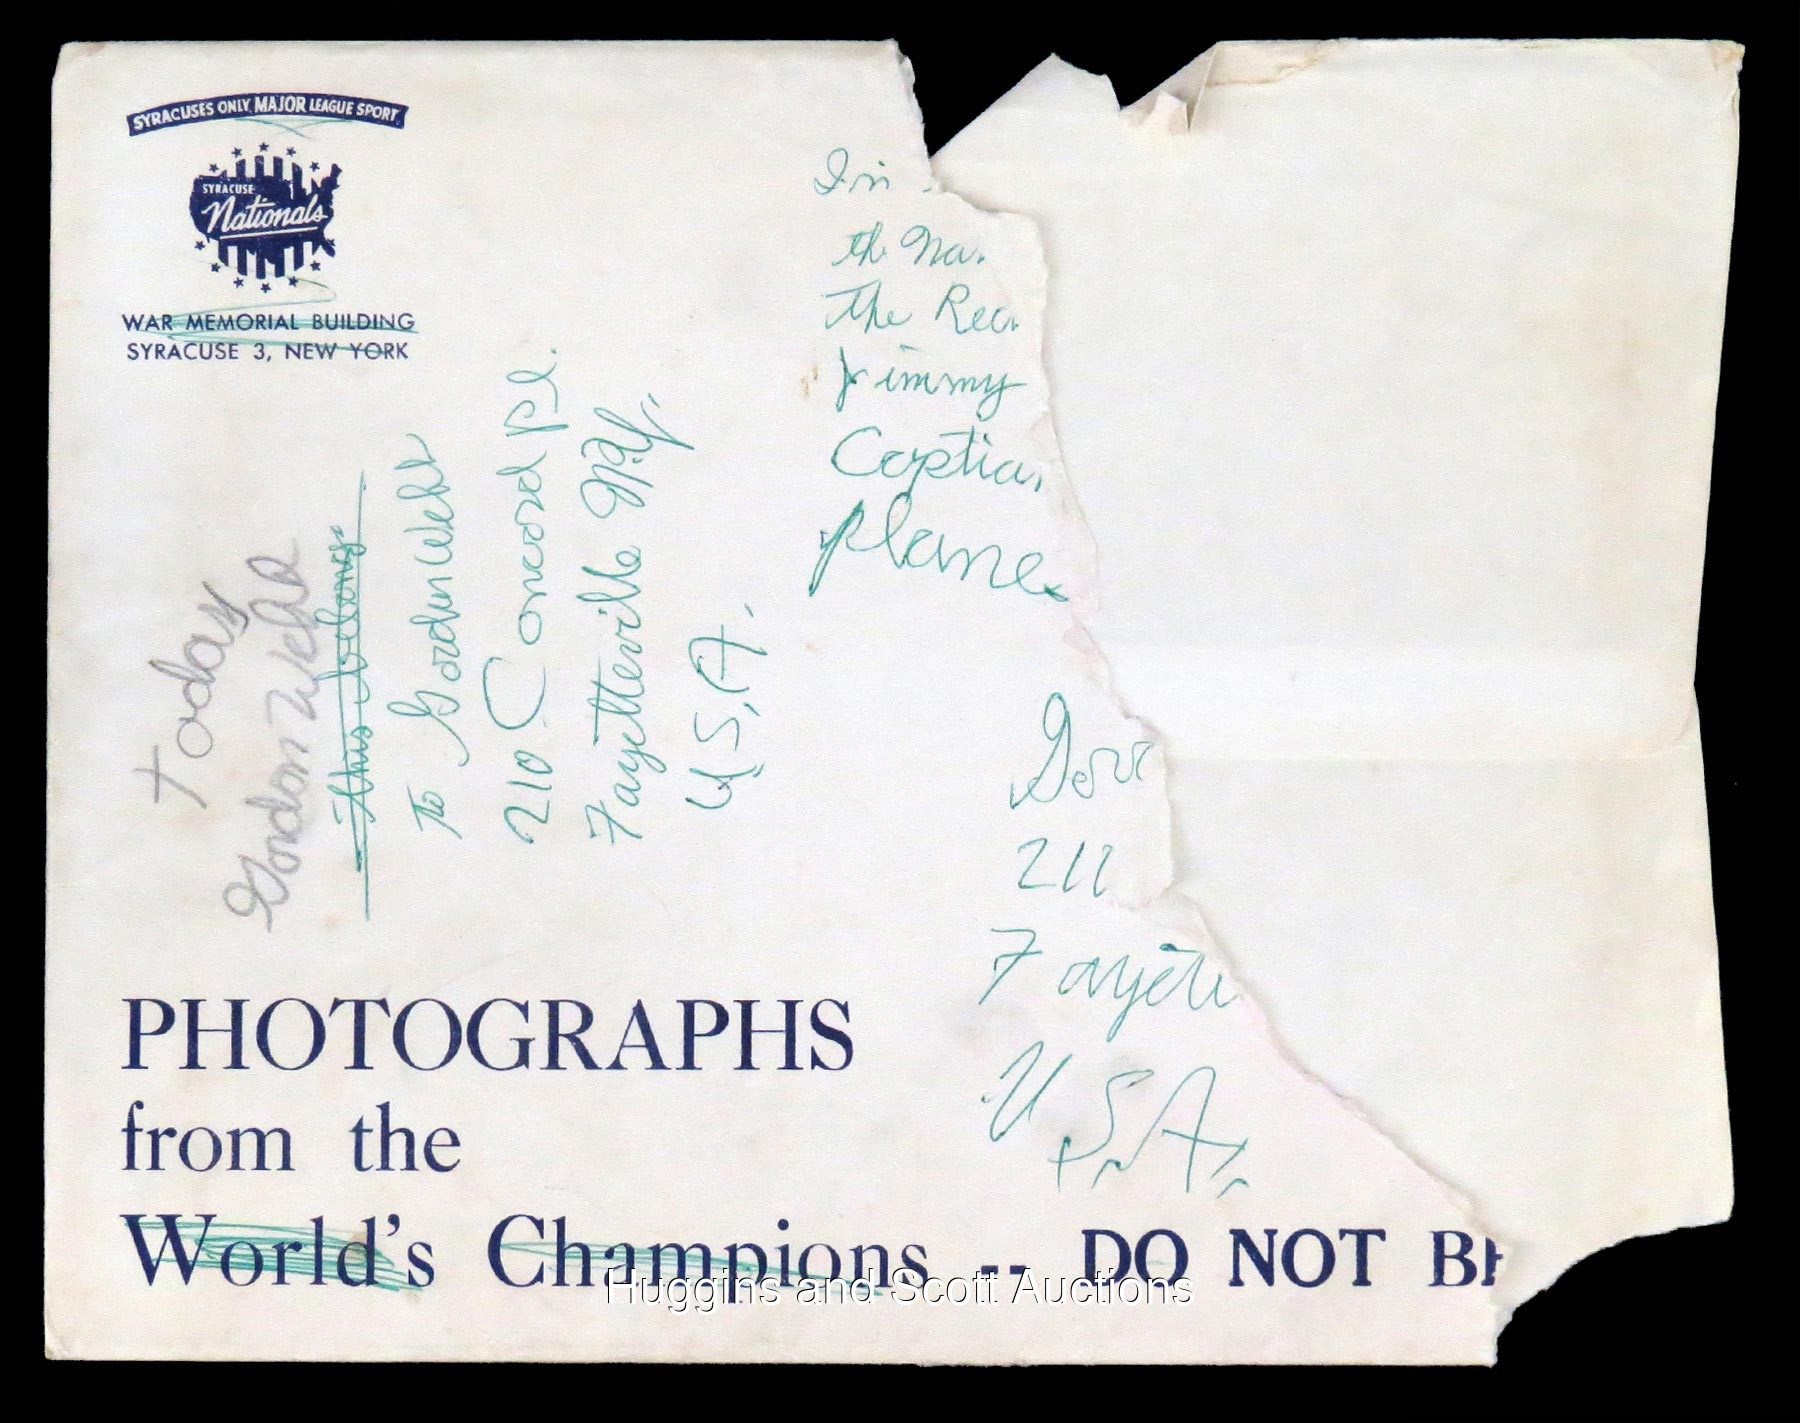 SYRACUSES ONLY MAJOR LEAGUE SPORT
SYRACUSE
Nationals
WAR MEMORIAL BUILDING
SYRACUSE 3, NEW YORK
Today
Gordon Wehl
This belongs
To Gordon Wehl
210 Concord pl.
Fayetteville N.Y.
U.S.A.
In
th Na
the Rec
Jimmy
Coptia
plane
Gor
211
Fayette
U.S.A.
PHOTOGRAPHS
from the
World's Champions -- DO NOT BE
Huggins and Scott Auctions